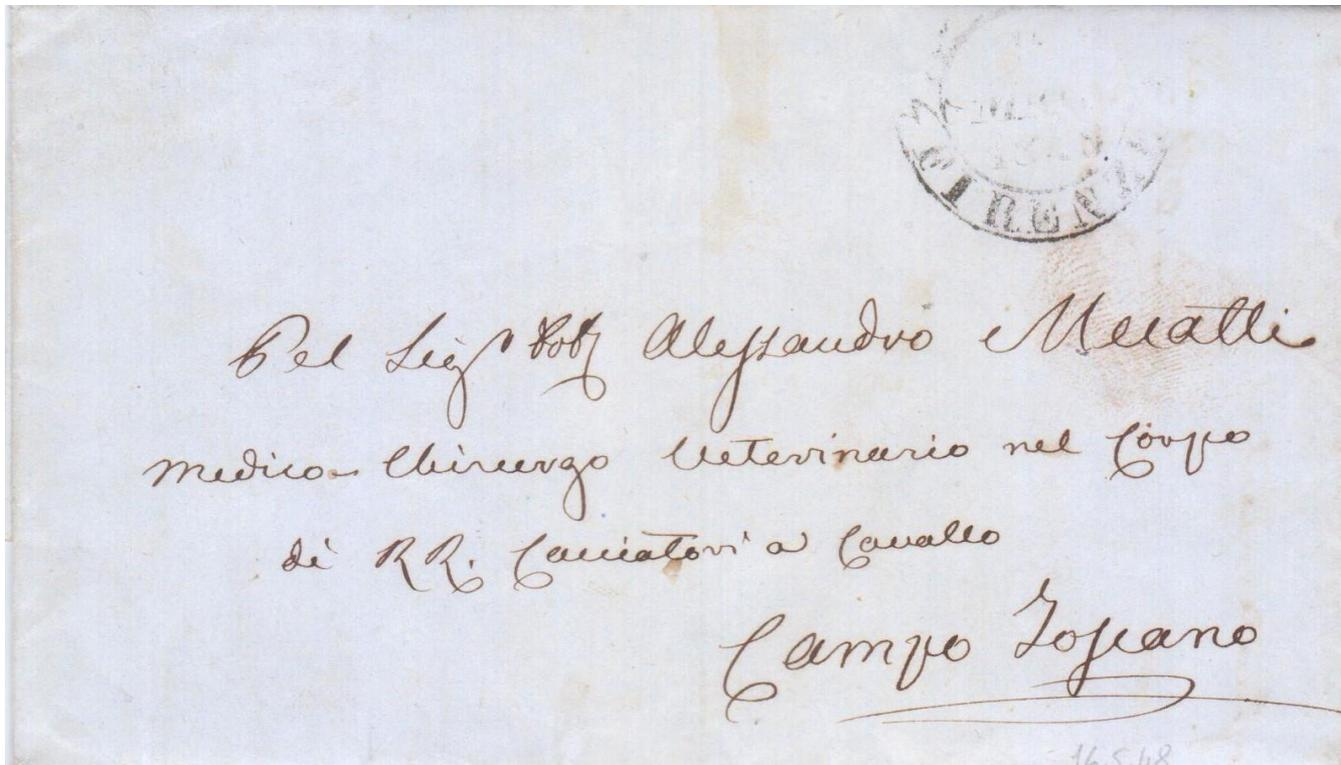 FIRENZE
Pel Sigr Dott Alessandro Mecatti
Medico Chirurgo Veterinario nel Corpo
di RR. Cacciatori a Cavallo
Campo Toscano
16.5.48